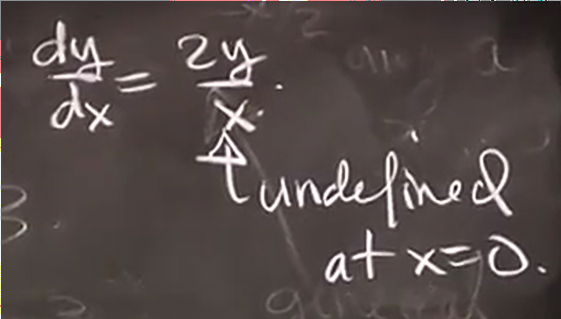 dy/dx = 2y/x.
undefined
at x=0.